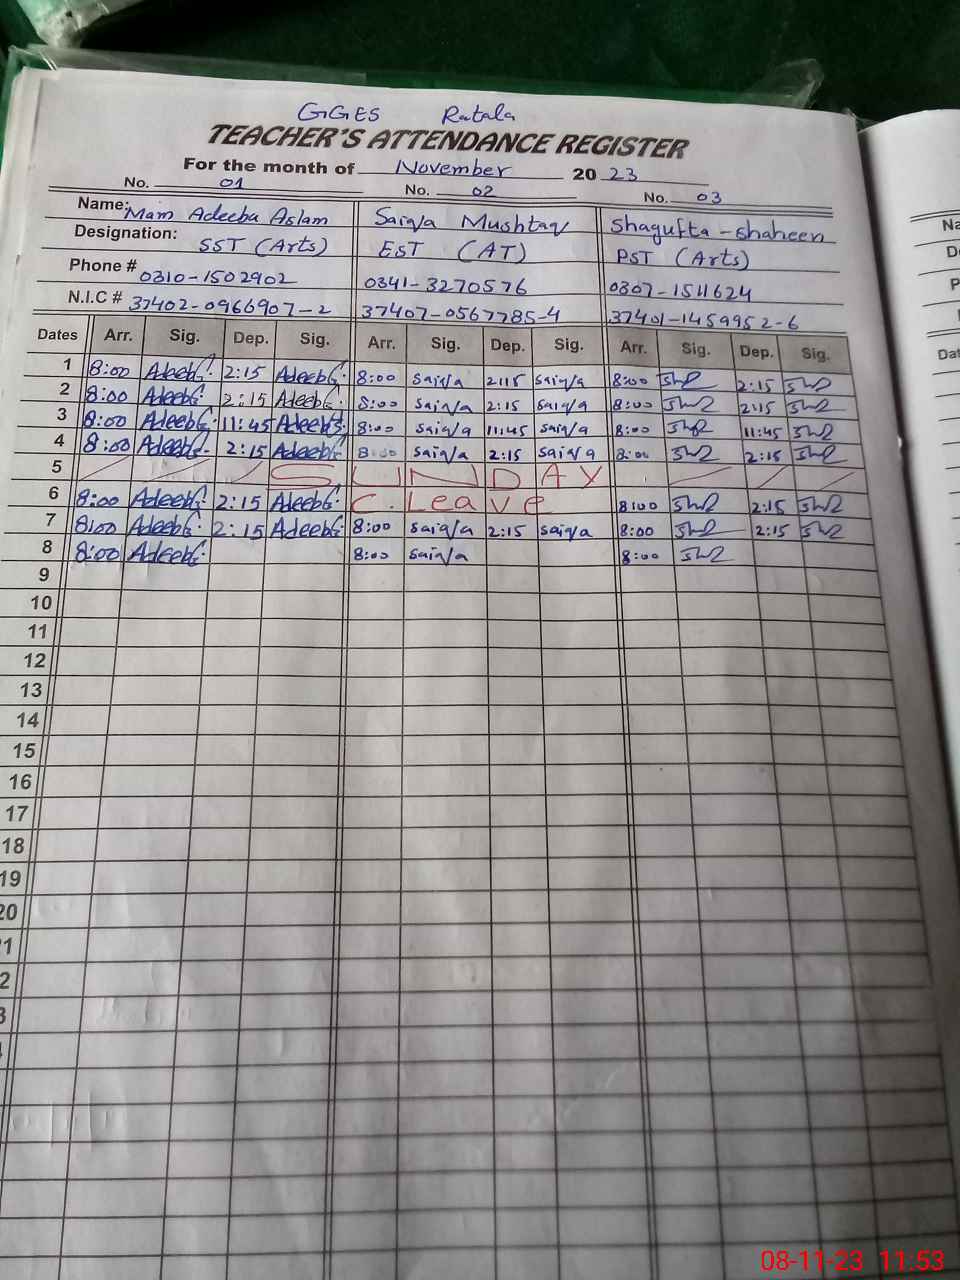 GGES Ratala
TEACHER'S ATTENDANCE REGISTER
For the month of November 20 23
No. 01 No. 02 No. 03
Name: Mam Adeeba Aslam Saiqa Mushtaq Shagufta-Shaheen
Designation: SST (Arts) EST (AT) PST (Arts)
Phone # 0310-1502902 0341-3270576 0307-1511624
N.I.C # 37402-0966907-2 37407-0567785-4 37401-1459952-6
Dates Arr. Sig. Dep. Sig. Arr. Sig. Dep. Sig. Arr. Sig. Dep. Sig.
1 8:00 Adeeba 2:15 Adeeba 8:00 Saiqa 2:15 Saiqa 8:00 2:15
2 8:00 Adeeba 2:15 Adeeba 8:00 Saiqa 2:15 Saiqa 8:00 2:15
3 8:00 Adeeba 11:45 Adeeba 8:00 Saiqa 11:45 Saiqa 8:00 11:45
4 8:00 Adeeba 2:15 Adeeba 8:00 Saiqa 2:15 Saiqa 8:00 2:15
5 SUNDAY
6 8:00 Adeeba 2:15 Adeeba C.Leave 8:00 2:15
7 8:00 Adeeba 2:15 Adeeba 8:00 Saiqa 2:15 Saiqa 8:00 2:15
8 8:00 Adeeba 8:00 Saiqa 8:00
9
10
11
12
13
14
15
16
17
18
19
20
1
2
3
Na
De
P
Dat
08-11-23 11:53